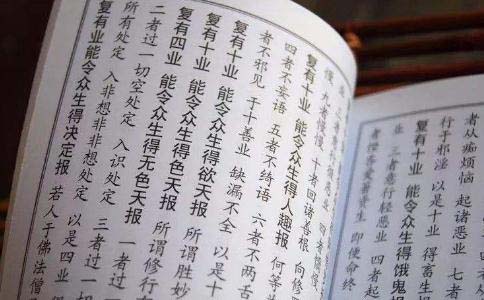 者从痴烦恼 起诸恶业 七者
行于邪淫 以是十业 得畜生
复有十业 能令众生得饿鬼报
业 三者意行轻恶业 四者起
者悭吝爱着资生 即使命终
三者意行微恶业 四者憍慢
慢 九者慢慢 十者回诸善根 向修
复有十业 能令众生得人趣报 何等
四者不妄语 五者不绮语 六者不两舌
者不邪见 于十善业 缺漏不全 以是十
复有十业 能令众生得欲天报 所谓胜妙
复有十业 能令众生得色天报 所谓修行
复有四业 能令众生得无色天报 一者过
二者过一切空处定 入识处定 三者过一切
所有处定 入非非想处定 以是四业
复有业 能令众生得决定报 若人于佛法僧